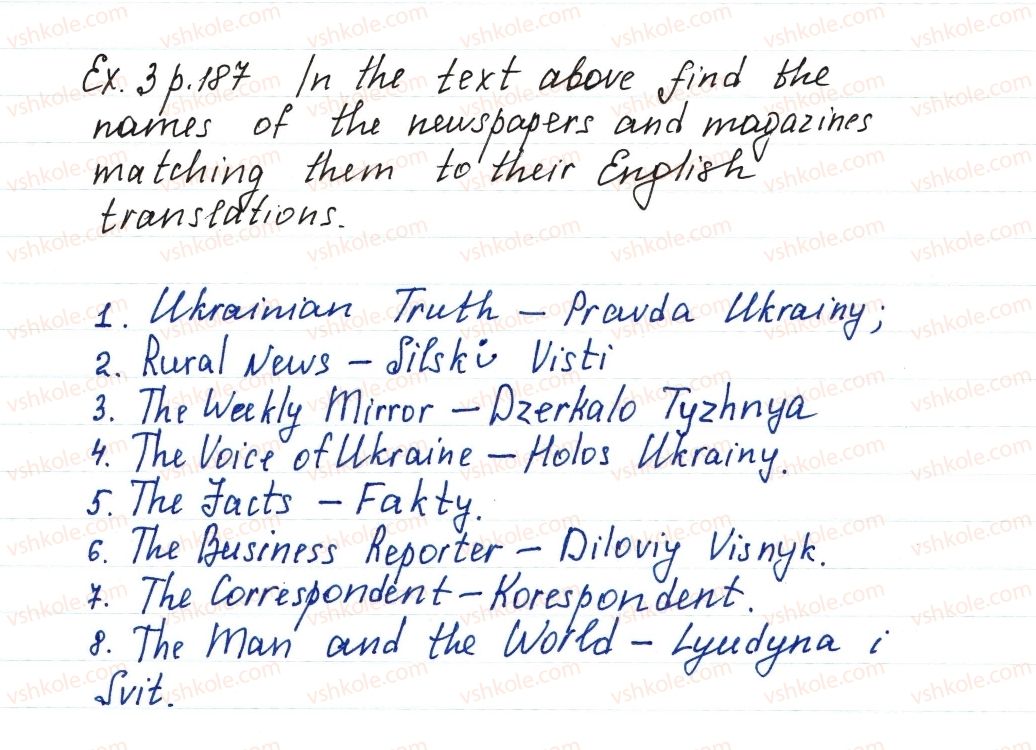 Ex. 3 p. 187 In the text above find the
names of the newspapers and magazines
matching them to their English
translations.
1. Ukrainian Truth – Pravda Ukrainy;
2. Rural News – Silski Visti
3. The Weekly Mirror – Dzerkalo Tyzhnya
4. The Voice of Ukraine – Holos Ukrainy.
5. The Facts – Fakty.
6. The Business Reporter – Diloviy Visnyk.
7. The Correspondent – Korespondent.
8. The Man and the World – Lyudyna i
Svit.